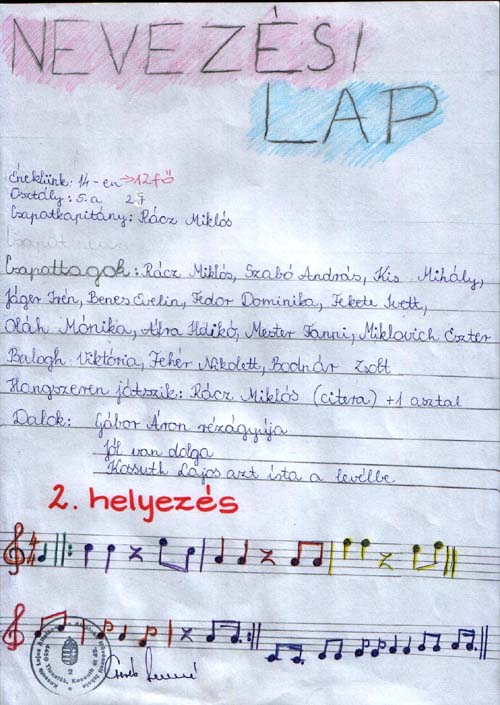 NEVEZÉSI
LAP
Éneklünk: 14-en → 12 fő
Osztály: 5.a 27
Csapatkapitány: Rácz Miklós
Csapat neve
Csapattagok: Rácz Miklós, Szabó András, Kis Mihály,
Jáger Irén, Benes Evelin, Fedor Dominika, Fekete Ivett,
Oláh Mónika, Áfra Ildikó, Mester Fanni, Miklovich Eszter
Balogh Viktória, Fehér Nikolett, Bodnár Zsolt
Hangszeren játszik: Rácz Miklós (citera) +1 asztal
Dalok: Gábor Áron rézágyúja
Jól van dolga
Kossuth Lajos azt írta a levélbe
2. helyezés